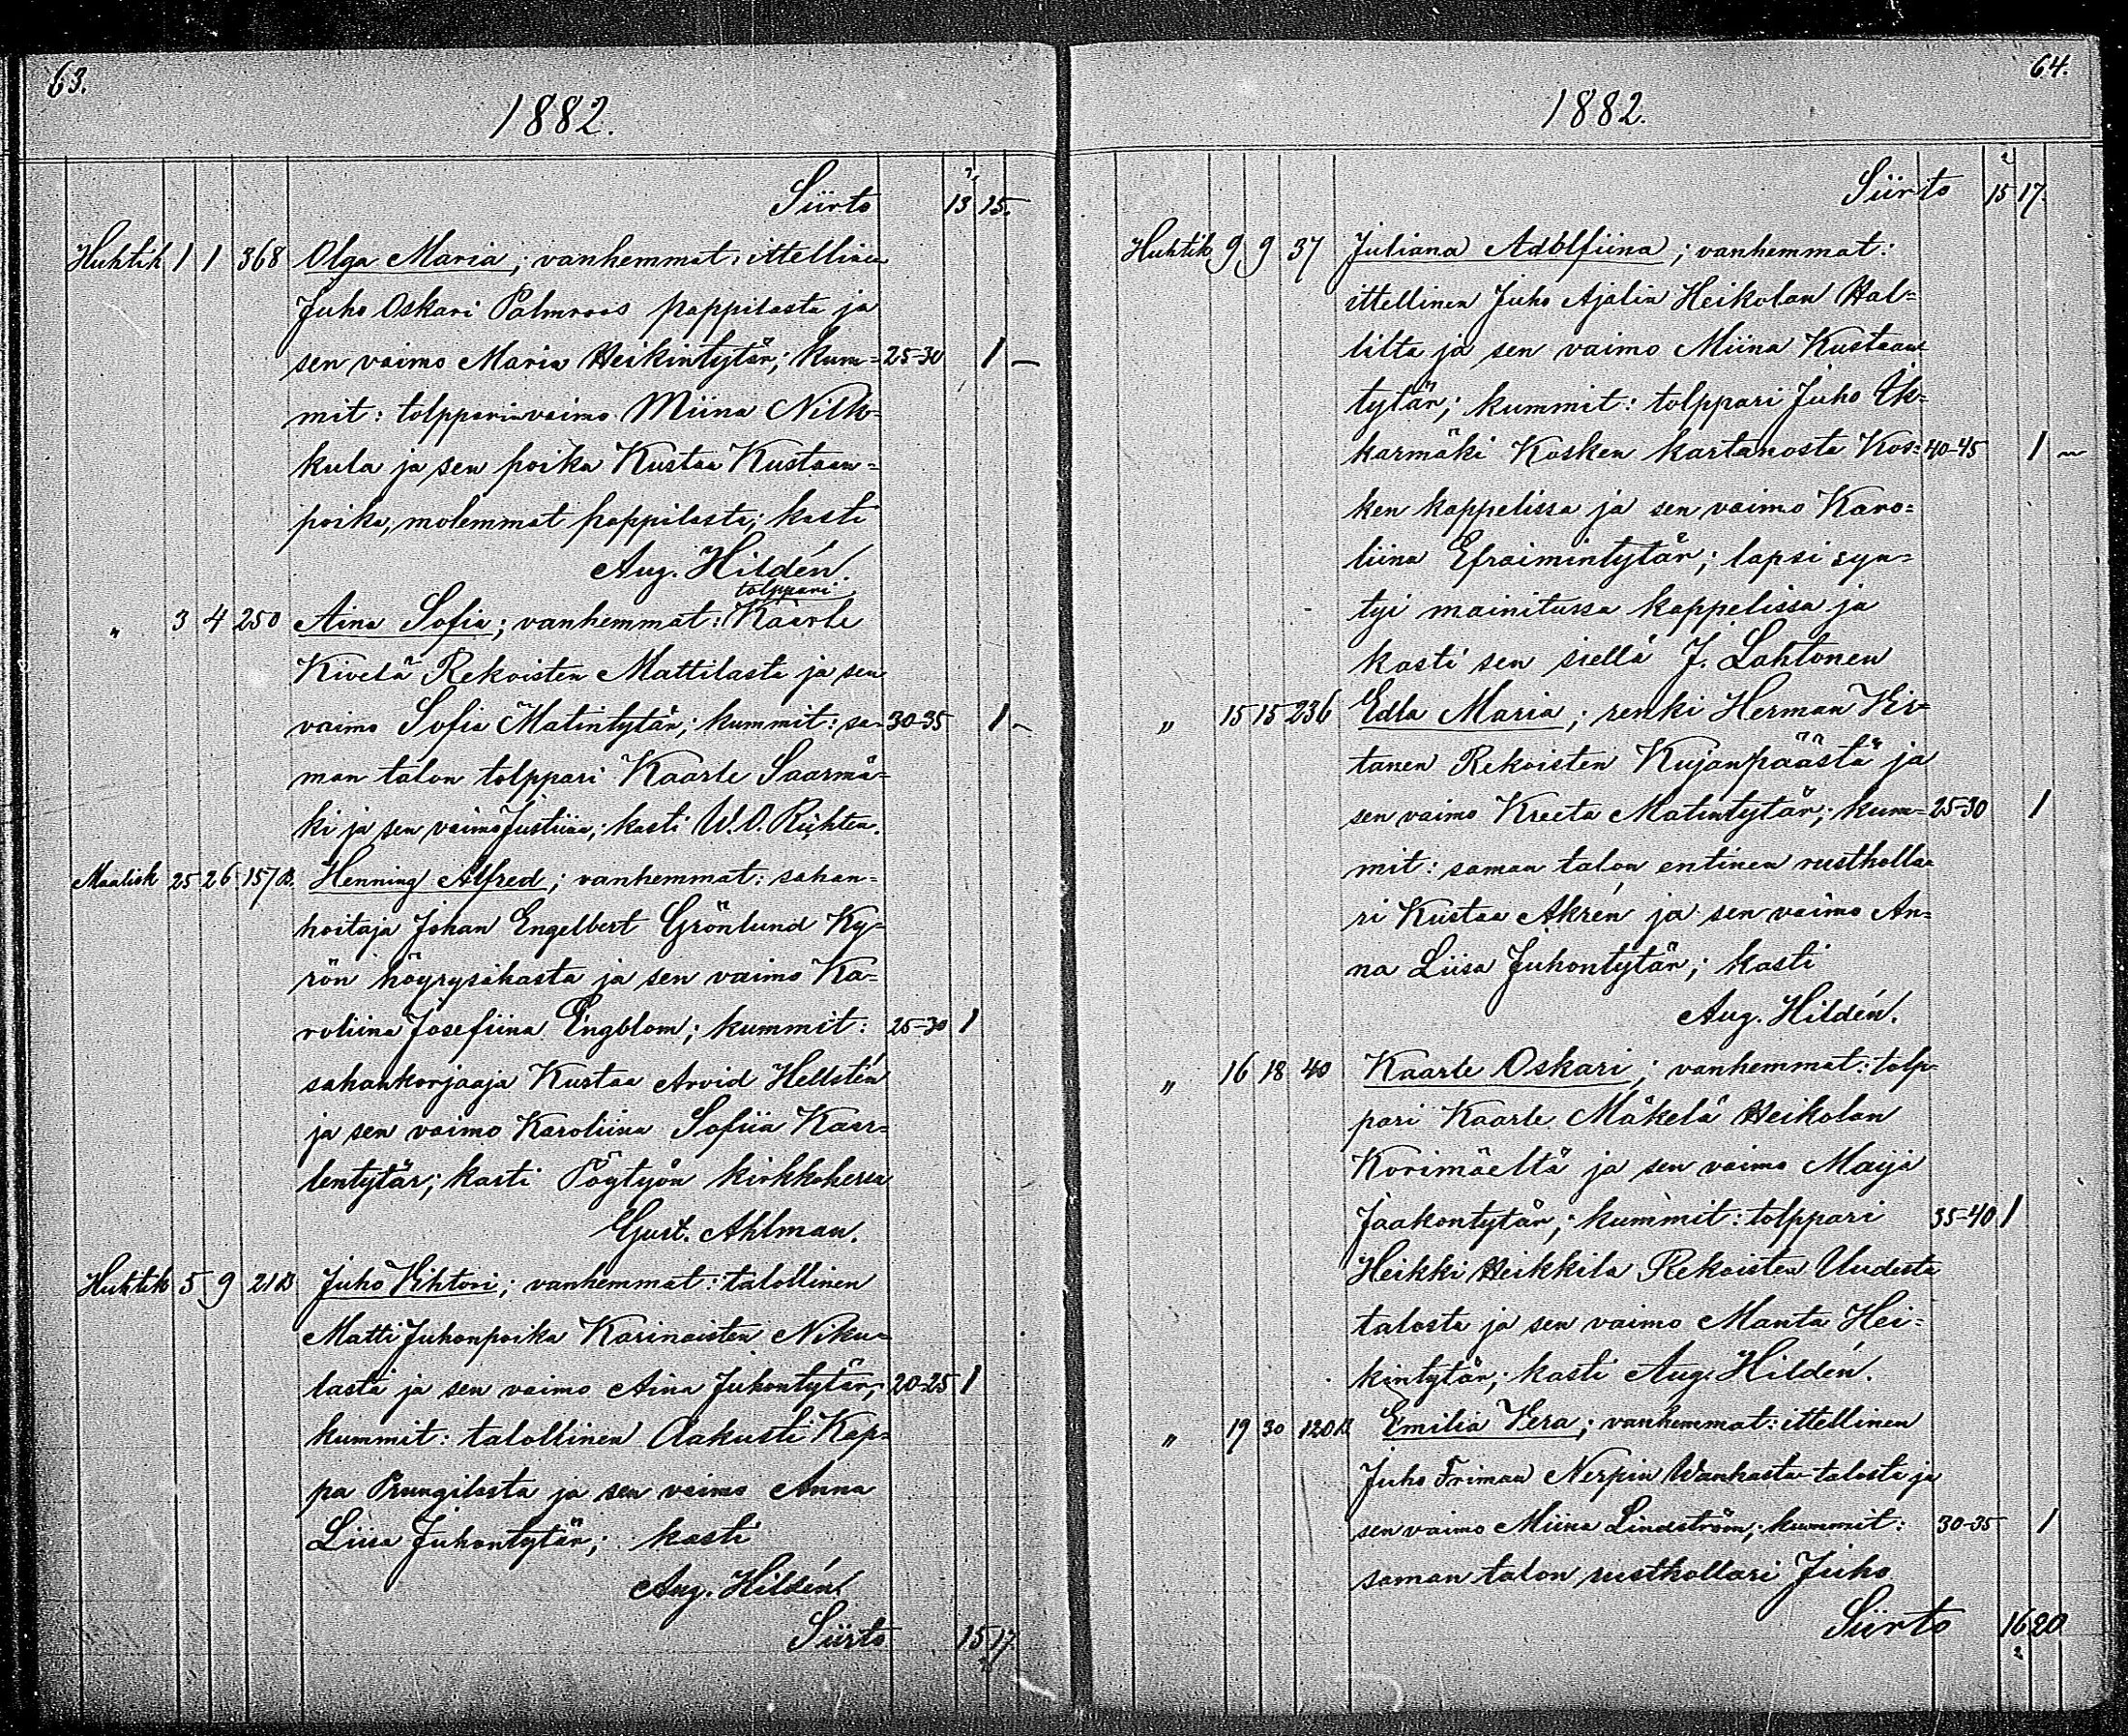 63.
1882.
Siirto 13 15.
Huhtik 1 1 368 Olga Maria; vanhemmat: ittellinen
Juho Oskari Palmroos pappilasta ja
sen vaimo Maria Heikintytär; kum= 25-30 1 –
mit: tolpparinvaimo Miina Nilk=
kula ja sen poika Kustaa Kustaan=
poika, molemmat pappilasta; kasti
Aug. Hildén.
tolppari
" 3 4 250 Aina Sofia; vanhemmat: Kaarle
Kivelä Rekoisten Mattilasta ja sen
vaimo Sofia Matintytär; kummit: sa= 30-35 1 –
man talon tolppari Kaarle Saarmä=
ki ja sen vaimo Justiina; kasti W.O. Richten.
Maalisk 25 26 157 B. Henning Alfred; vanhemmat: sahan=
hoitaja Johan Engelbert Grönlund Ky=
rön höyrysahasta ja sen vaimo Ka=
roliina Josefiina Engblom; kummit: 25-30 1
sahankorjaaja Kustaa Arvid Hellstén
ja sen vaimo Karoliina Sofiia Kaar=
lentytär; kasti Pöytyön kirkkoherra
Gust. Ahlman.
Huhtik 5 9 21 B Juho Vihtori; vanhemmat: talollinen
Matti Juhonpoika Karinaisten Niku=
lasta ja sen vaimo Aina Juhontytär; 20-25 1
kummit: talollinen Aakusti Kap=
pa Prungilasta ja sen vaimo Anna
Liisa Juhontytär; kasti
Aug. Hildén.
Siirto 15 17.
64.
1882.
Siirto 15 17.
Huhtik 9 9 37 Juliana Adolfiina; vanhemmat:
ittellinen Juho Ajalin Heikolan Hal=
lilta ja sen vaimo Miina Kustaan
tytär; kummit: tolppari Juho Ik=
karmäki Kosken kartanosta Kos= 40-45 1 –
ken kappelissa ja sen vaimo Karo=
liina Efraimintytär; lapsi syn=
tyi mainitussa kappelissa ja
kasti sen siellä J. Lahtonen
" 15 15 236 Edla Maria; renki Herman Vir=
tanen Rekoisten Kujanpäästä ja
sen vaimo Kreeta Matintytär; kum= 25-30 1
mit: saman talon entinen rusthollaa
ri Kustaa Akrén ja sen vaimo An=
na Liisa Juhontytär; kasti
Aug. Hildén.
" 16 18 40 Kaarle Oskari; vanhemmat: tolp=
pari Kaarle Mäkelä Heikolan
Korimäeltä ja sen vaimo Maija
Jaakontytär; kummit: tolppari 35-40 1
Heikki Heikkilä Rekoisten Uudesta
talosta ja sen vaimo Manta Hei=
kintytär; kasti Aug. Hildén.
" 19 30 120 B Emilia Vera; vanhemmat: ittellinen
Juho Friman Nerpin Wanhasta-talosta ja
sen vaimo Miina Lindström; kummit: 30-35 1
saman talon rusthollari Juho
Siirto 16 20